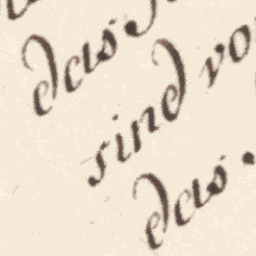 das
sind vo
das.